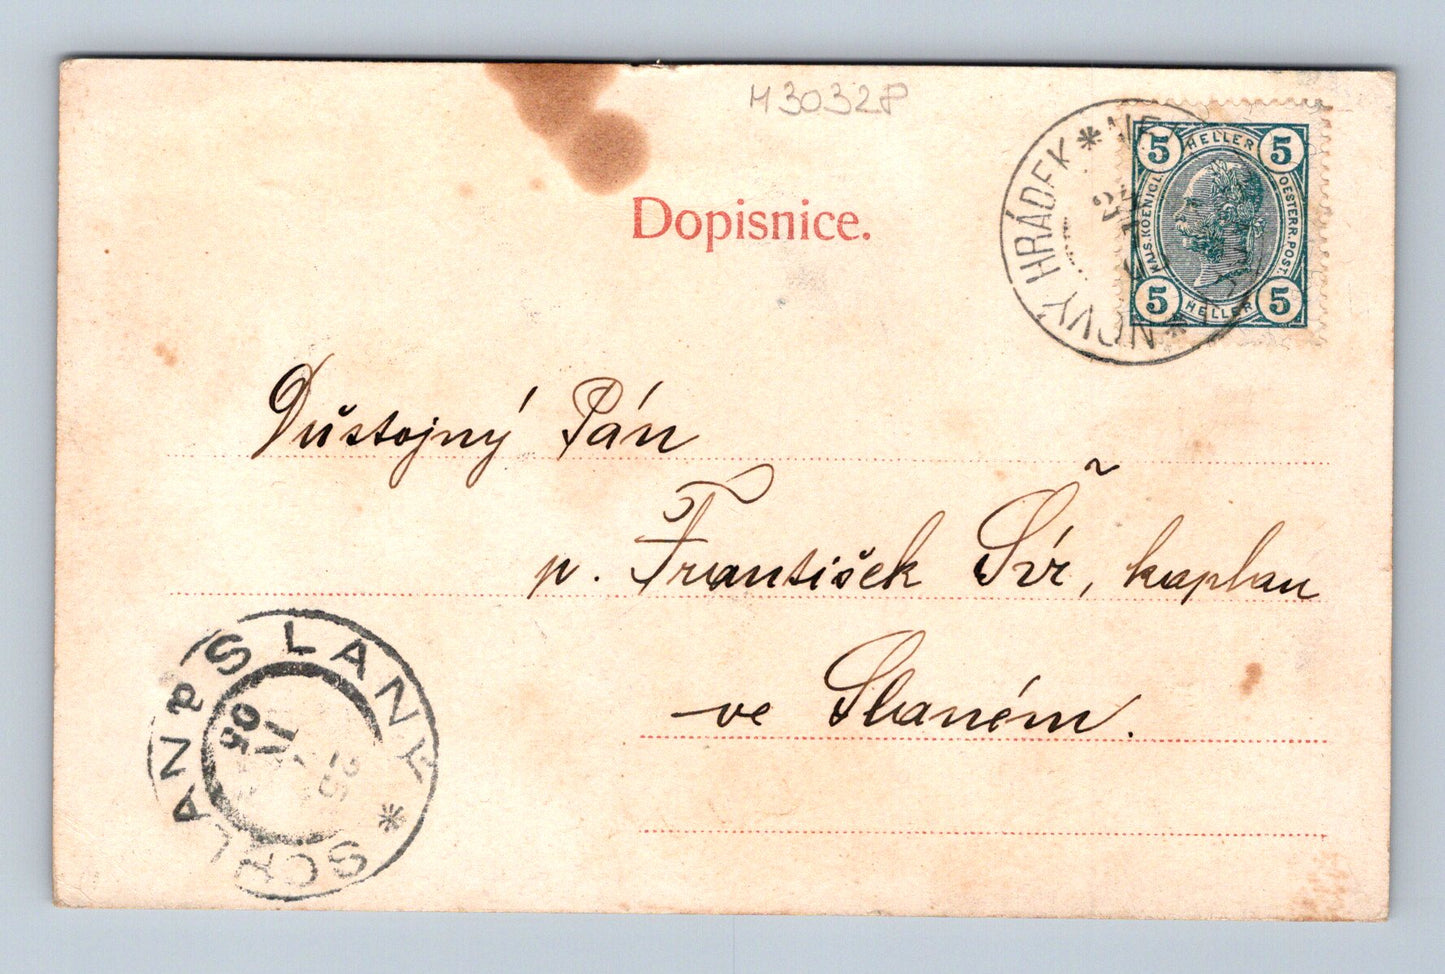 M3032P
Dopisnice.
NOVÝ HRÁDEK * NE
24
5 HELLER 5
KAIS. KOENIGL.
OESTERR. POST.
5 HELLER 5
Důstojný Pán
p. František Šír, kaplan
ve Slaném.
SLANY * SCHLAN
25
IV
05